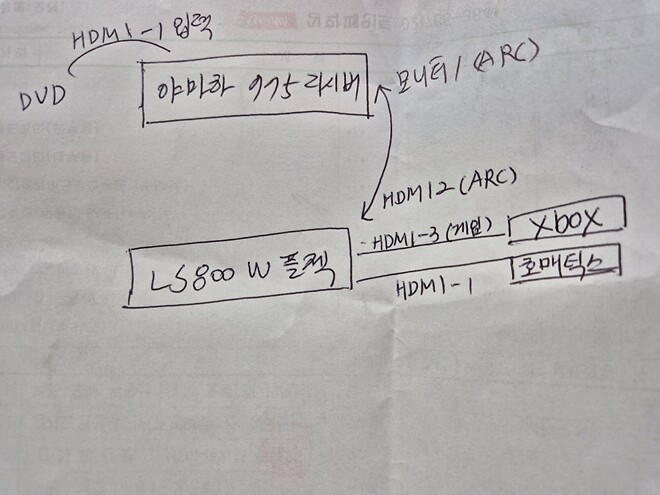 HDMI-1 입력
DVD
야마하 975 리시버
모니터1 (ARC)
HDMI2 (ARC)
LS800 W 플젝
HDMI-3 (게임)
Xbox
HDMI-1
호매틱스